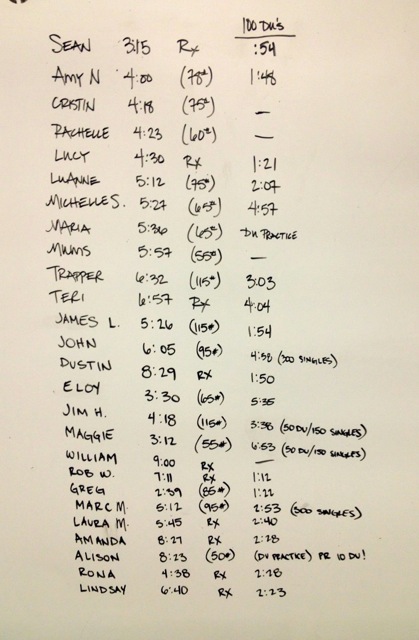 100 DU's
SEAN 3:15 Rx :54
AMY N 4:00 (78#) 1:48
CRISTIN 4:18 (75#) —
RACHELLE 4:23 (60#) —
LUCY 4:30 Rx 1:21
LUANNE 5:12 (75#) 2:07
MICHELLE S. 5:27 (65#) 4:57
MARIA 5:36 (65#) DU PRACTICE
MIMS 5:57 (55#) —
TRAPPER 6:32 (115#) 3:03
TERI 6:57 Rx 4:04
JAMES L. 5:26 (115#) 1:54
JOHN 6:05 (95#) 4:58 (300 SINGLES)
DUSTIN 8:29 RX 1:50
ELOY 3:30 (65#) 5:35
JIM H. 4:18 (115#) 3:38 (50 DU/150 SINGLES)
MAGGIE 3:12 (55#) 6:53 (50 DU/150 SINGLES)
WILLIAM 9:00 RX —
ROB W. 7:11 RX 1:12
GREG 2:39 (85#) 1:22
MARC M. 5:12 (95#) 2:53 (300 SINGLES)
LAURA M. 5:45 RX 2:40
AMANDA 8:27 RX 2:28
ALISON 8:23 (50#) (DU PRACTICE) PR 10 DU!
RONA 4:38 RX 2:28
LINDSAY 6:40 RX 2:23